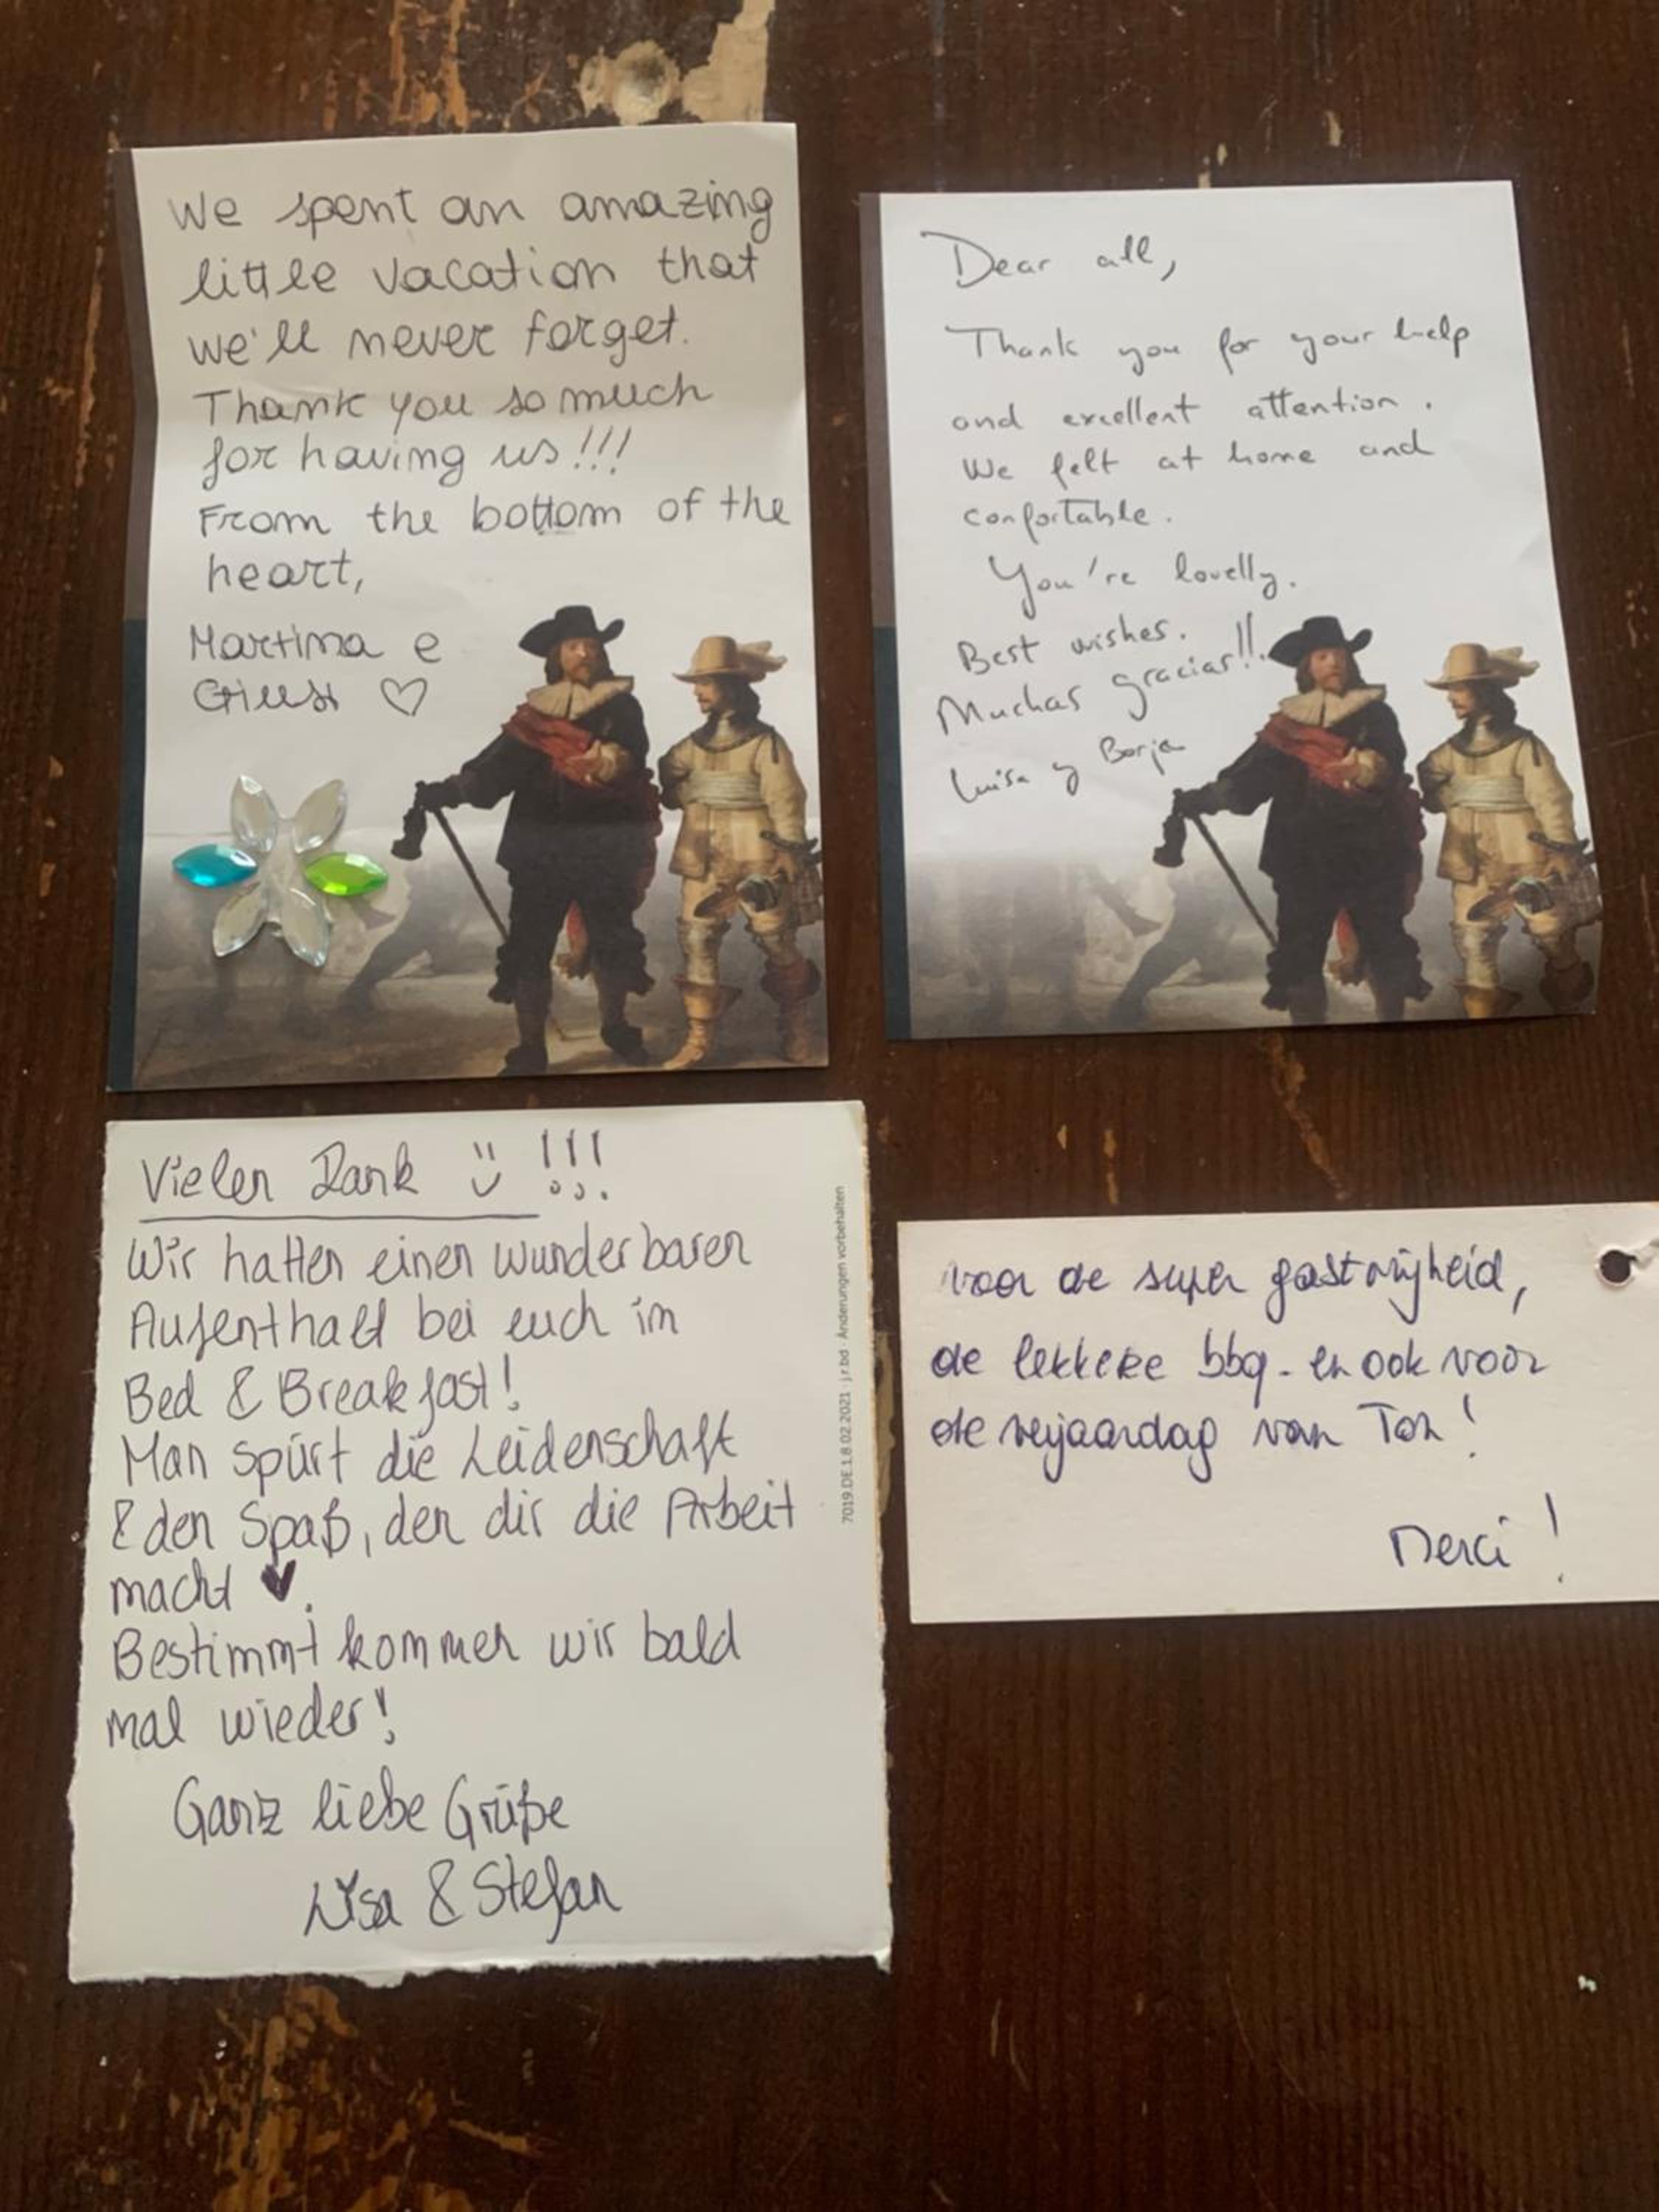 We spent an amazing
little vacation that
we'll never forget.
Thank you so much
for having us!!!
From the bottom of the
heart,
Martina e
Giusi ♡
Dear all,
Thank you for your help
and excellent attention.
We felt at home and
confortable.
You're lovelly.
Best wishes.
Muchas gracias!!.
Luisa y Borja
Vielen Dank !!!
Wir hatten einen wunderbaren
Aufenthalt bei euch im
Bed & Breakfast!
Man spürt die Leidenschaft
& den Spaß, den dir die Arbeit
macht ♥.
Bestimmt kommen wir bald
mal wieder!
Ganz liebe Grüße
Lisa & Stefan
7019.DE.1.8.02.2021 · j.r.bd · Änderungen vorbehalten
voor de super gastvrijheid,
de lekkere bbq - en ook voor
de verjaardag van Ton!
Merci!